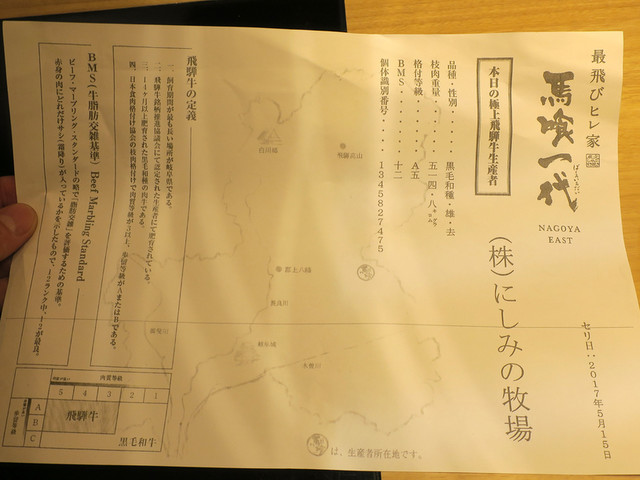 最飛びヒレ家
馬喰一代
ばくろいちだい
NAGOYA
EAST
セリ日：２０１７年５月１５日
本日の極上飛騨牛生産者
（株）にしみの牧場
品種・性別・・・・・黒毛和種・雄・去
枝肉重量・・・・・・五一四・八キログラム
格付等級・・・・・・Ａ五
ＢＭＳ・・・・・・・十二
個体識別番号・・・・１３４５８２７４７５
白川郷
飛騨高山
郡上八幡
長良川
揖斐川
岐阜城
木曽川
は、生産者所在地です。
飛騨牛の定義
一、飼育期間が最も長い場所が岐阜県である。
二、飛騨牛銘柄推進協議会にて認定された生産者にて肥育されている。
三、１４ヶ月以上肥育された黒毛和種の肉牛である。
四、日本食肉格付け協会の枝肉格付けで肉質等級が３以上、歩留等級がＡまたはＢである。
ＢＭＳ（牛脂肪交雑基準）Beef Marbling Standard
ビーフ・マーブリング・スタンダードの略で「脂肪交雑」を評価するための基準。
赤身の肉にどれだけサシ（霜降り）が入っているかを示したもので、１２ランク中、１２が最良。
肉質等級
5 4 3 2 1
歩留等級
A
B
C
飛騨牛
黒毛和牛